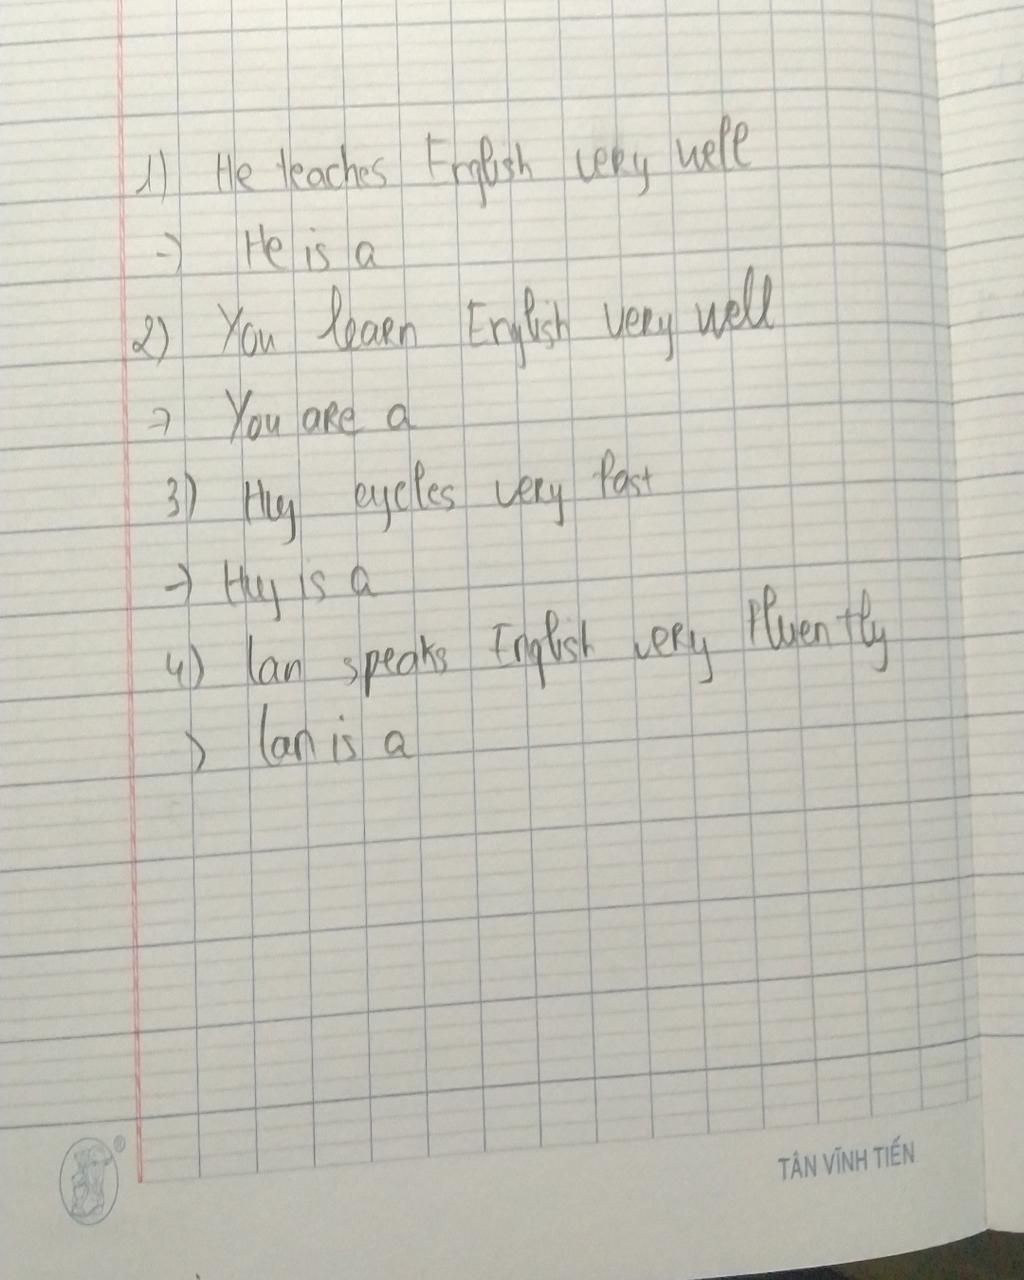 1) He teaches English very well
-> He is a
2) You learn English very well
-> You are a
3) Huy cycles very fast
-> Huy is a
4) lan speaks English very fluently
> lan is a
TÂN VĨNH TIẾN